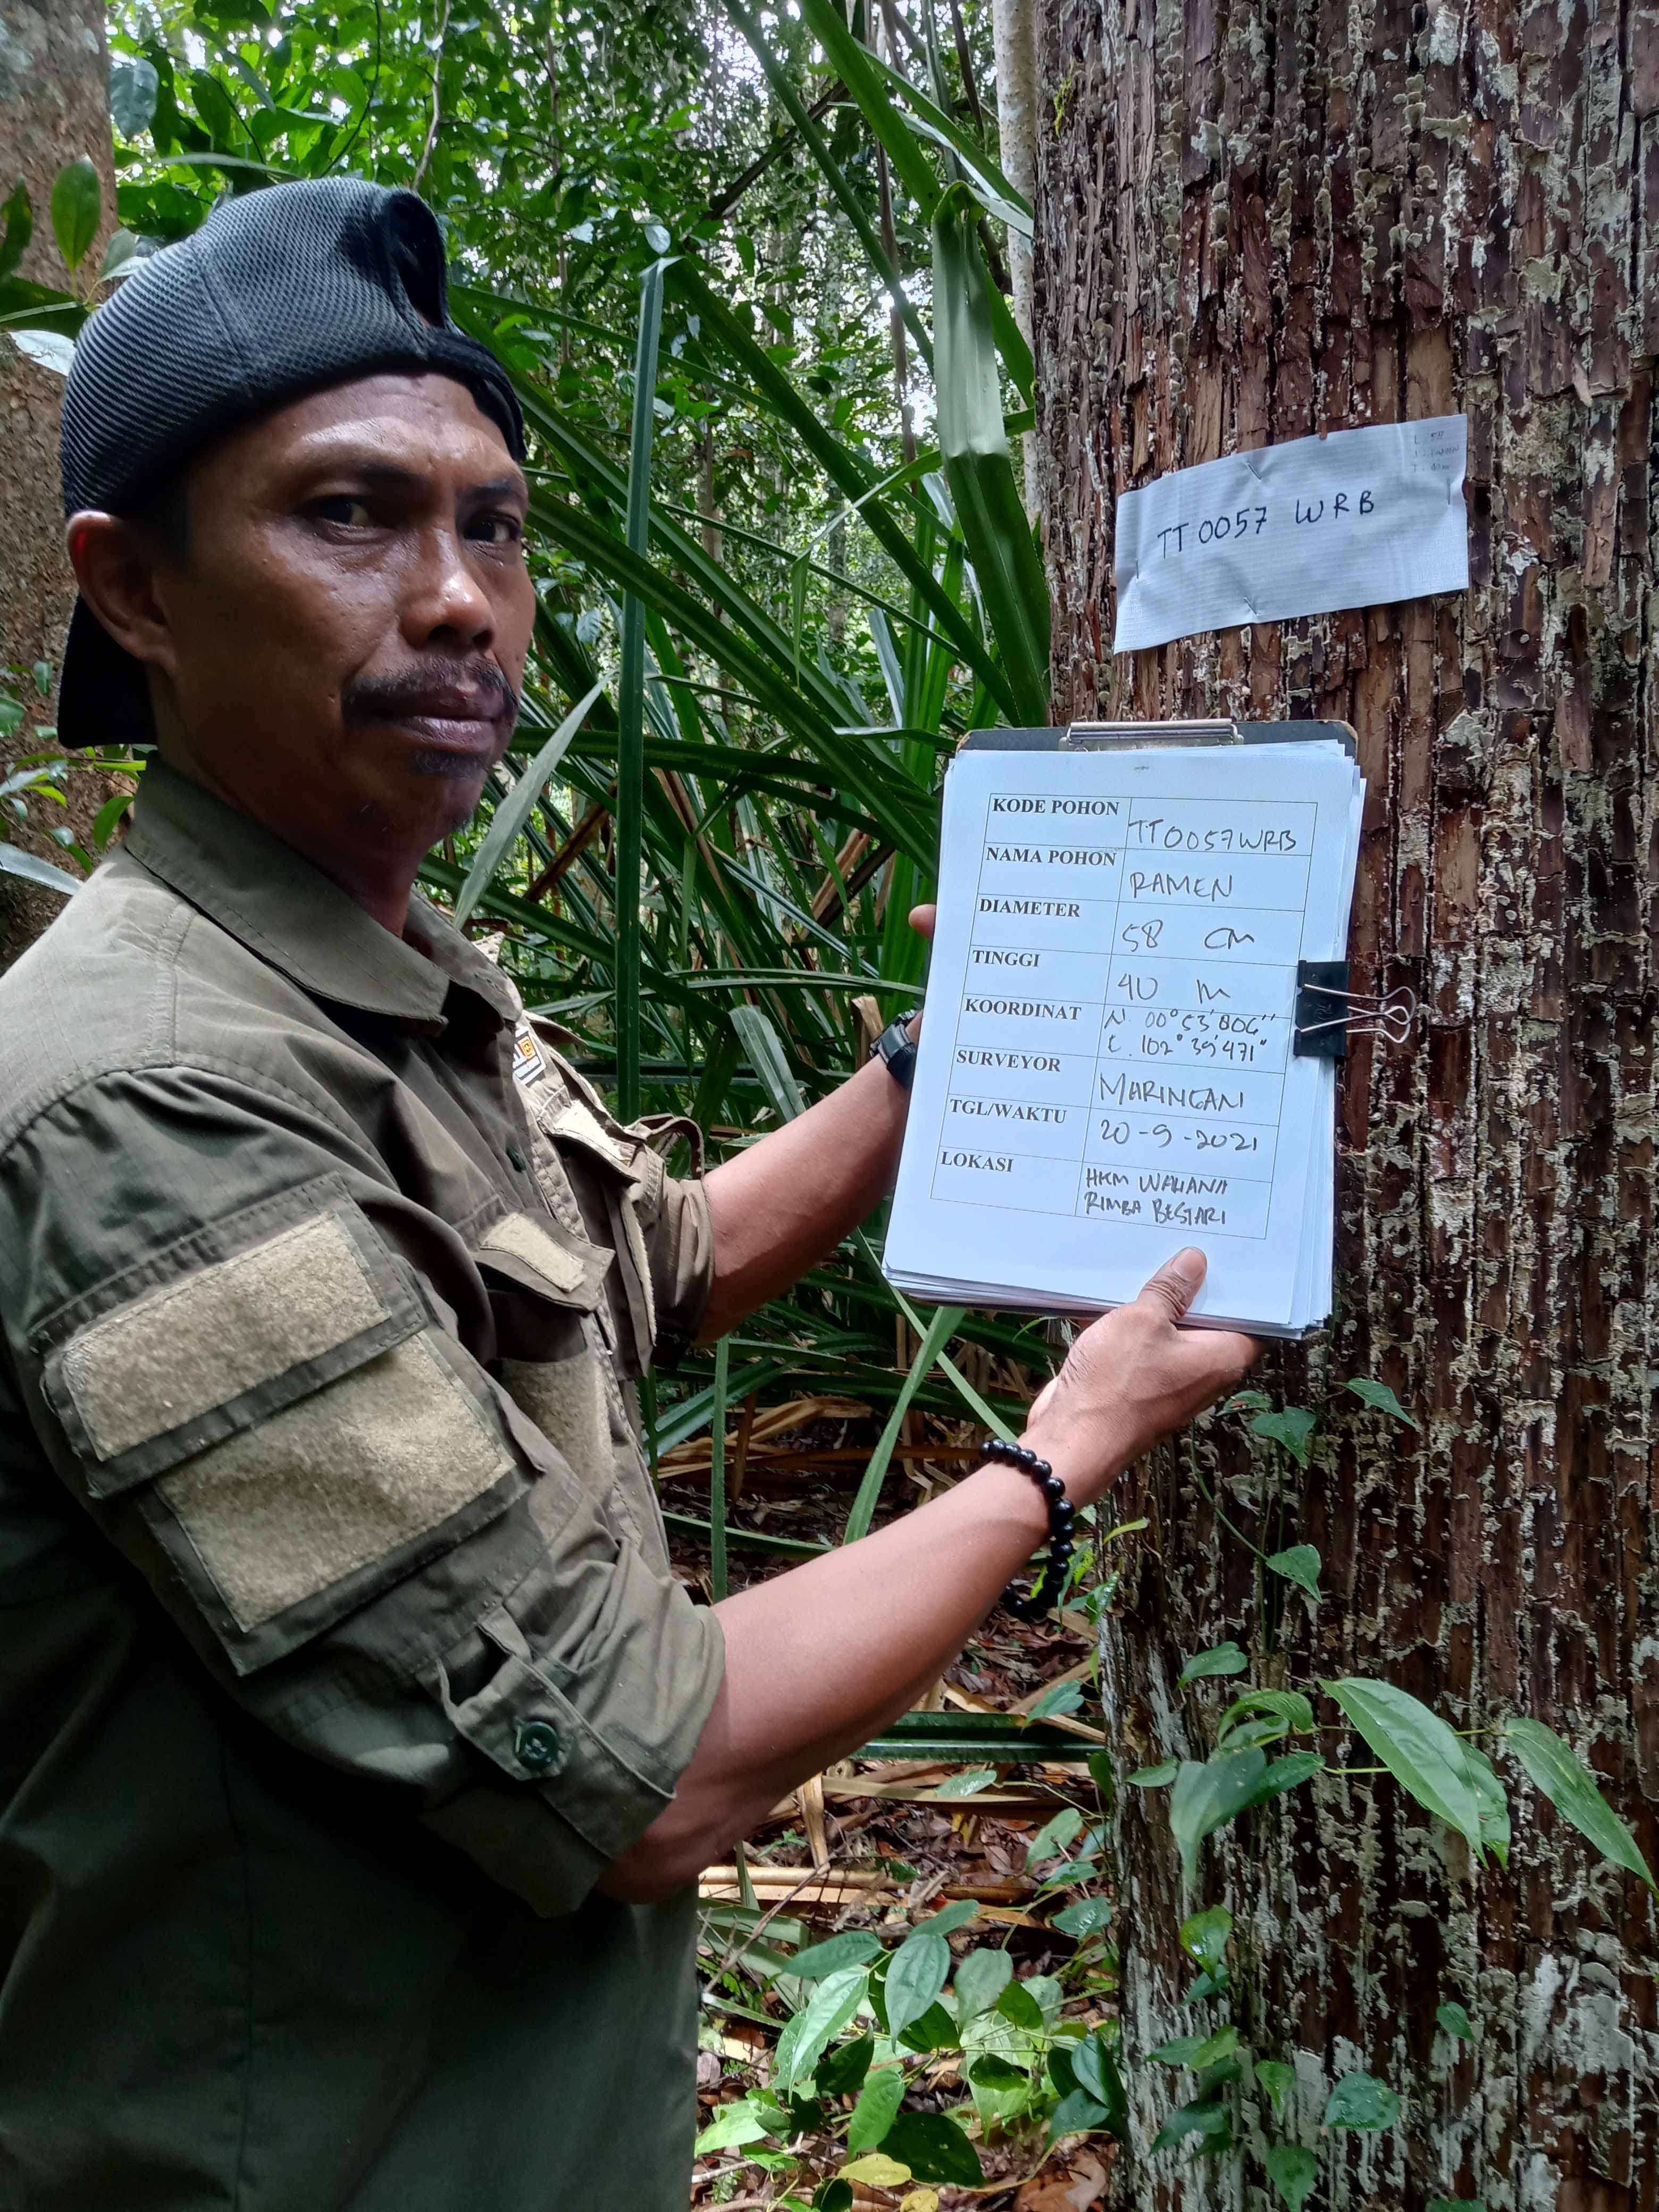 TT 0057 WRB
KODE POHON
TT0057WRB
NAMA POHON
RAMEN
DIAMETER
58 CM
TINGGI
40 M
KOORDINAT
N. 00° 53' 806"
E. 102° 39' 471"
SURVEYOR
MARINGAN
TGL/WAKTU
20-9-2021
LOKASI
HKM WAHANA
RIMBA BESTARI